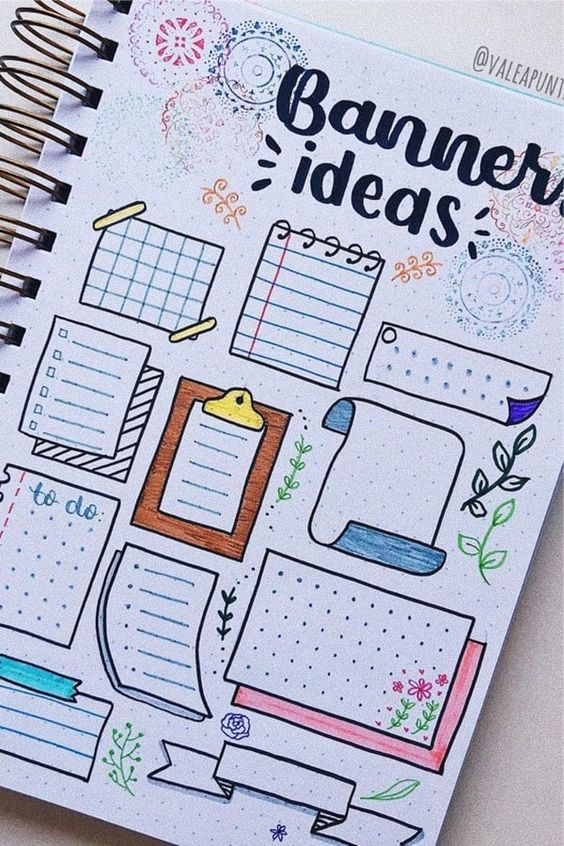 @VALEAPUNT
Banners
ideas
to do